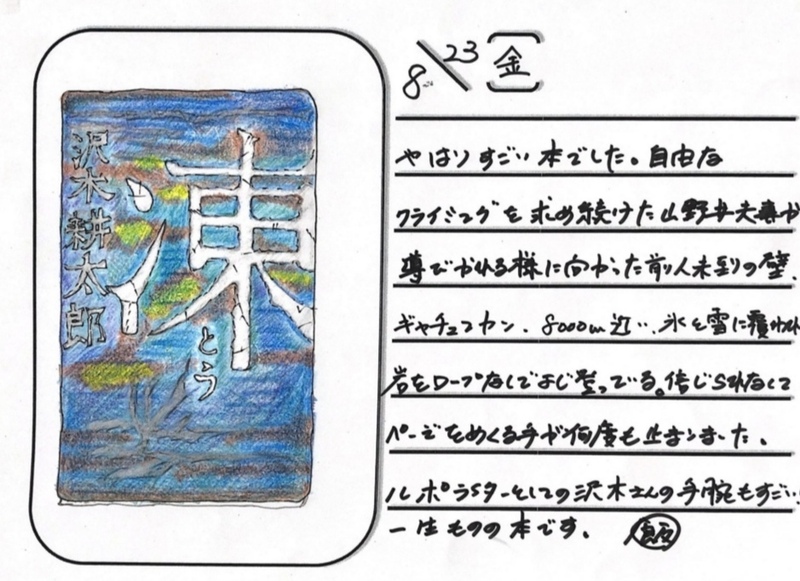 沢木耕太郎
凍
とう
8/23 [金]
やはりすごい本でした。自由な
クライミングを求め続けた山野井夫妻が
導びかれる様に向かった前人未到の壁、
ギャチュンカン、8000m近い、氷と雪に覆われ
岩をロープなしでよじ登っている。信じられなくて
ページをめくる手が何度も止まりました。
ルポライターとしての沢木さんの手腕もすごい
一生ものの本です。